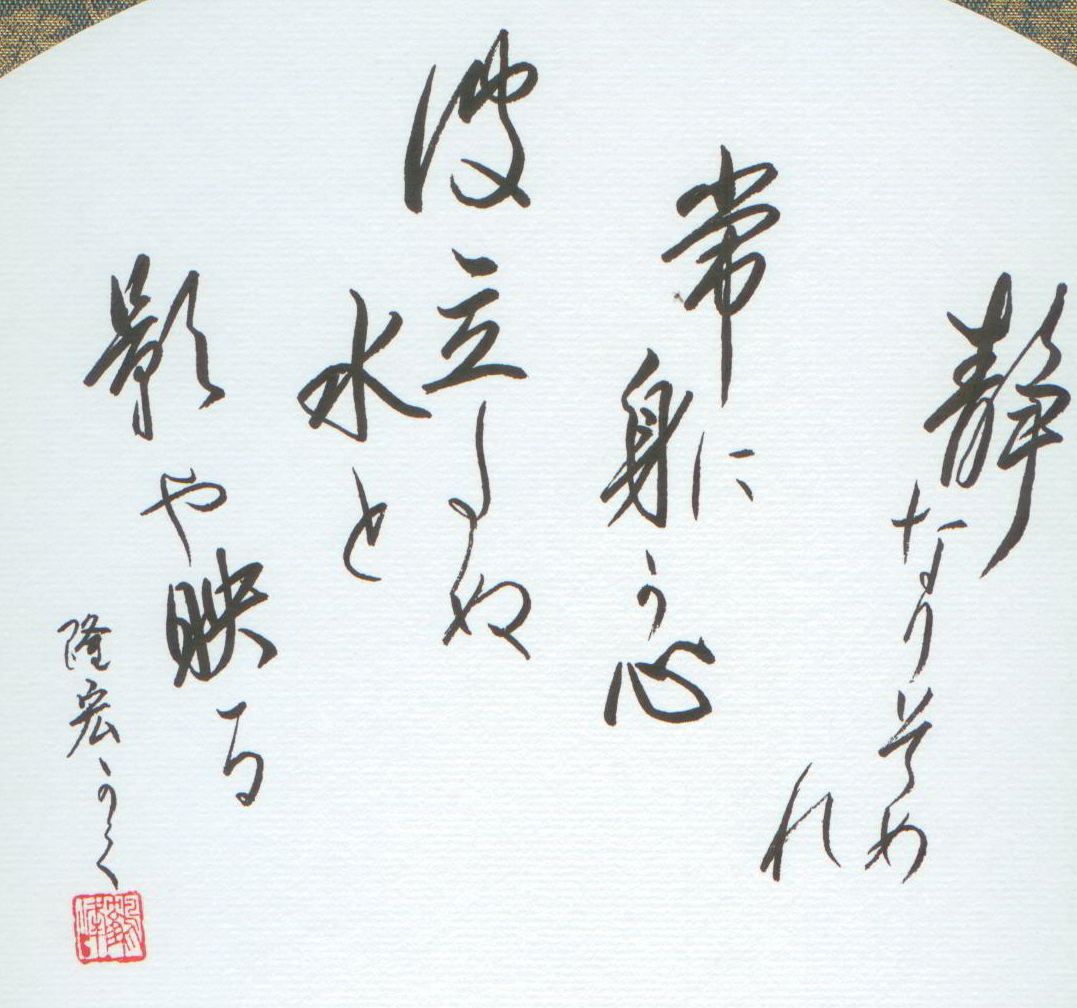 静なりそめ
れ
常に
身う心
波立ぬ
水と
影や映る
隆宏かく